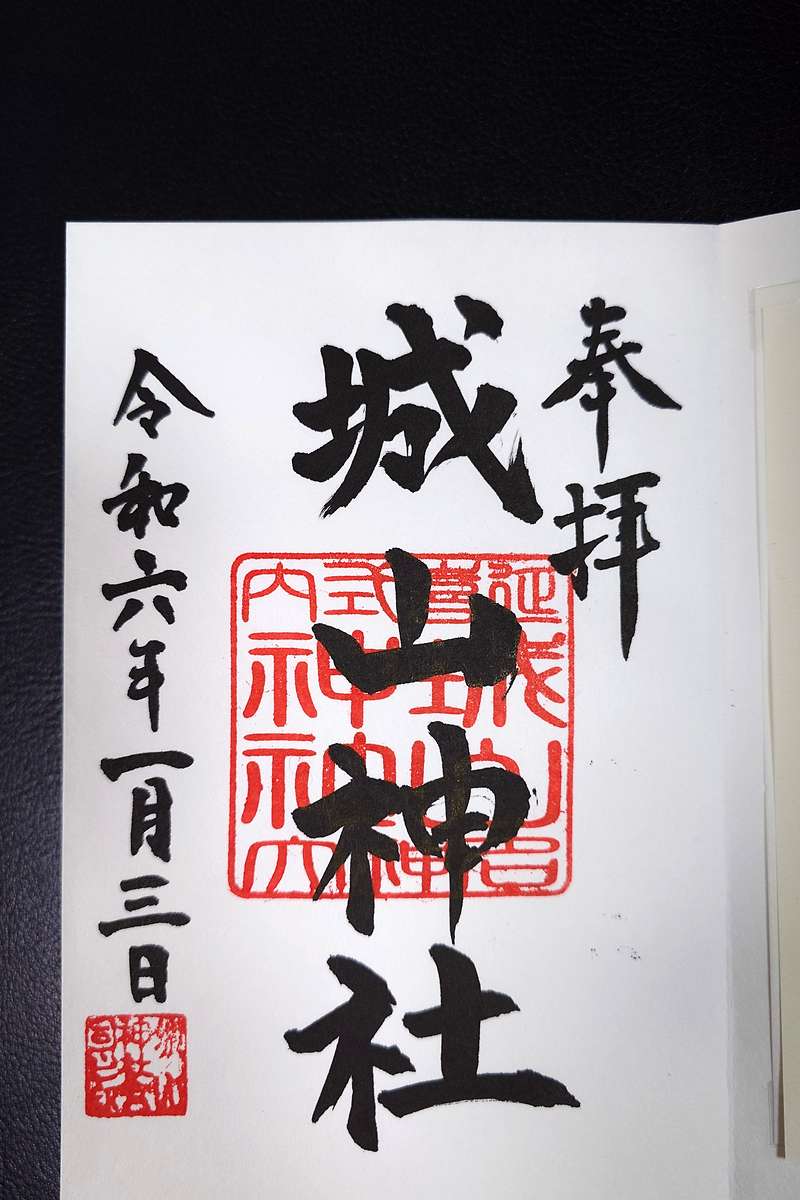 奉拝
城山神社
延喜式内
城山
神社
名神大
令和六年一月三日